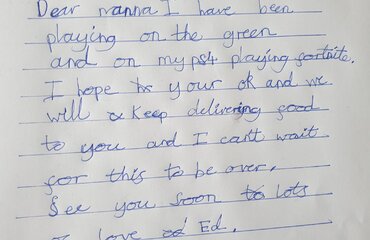 Dear nanna I have been
playing on the green
and on my ps4 playing fortnite.
I hope your ok and we
will keep delivering food
to you and I cant wait
for this to be over.
See you soon Lots
love Ed.